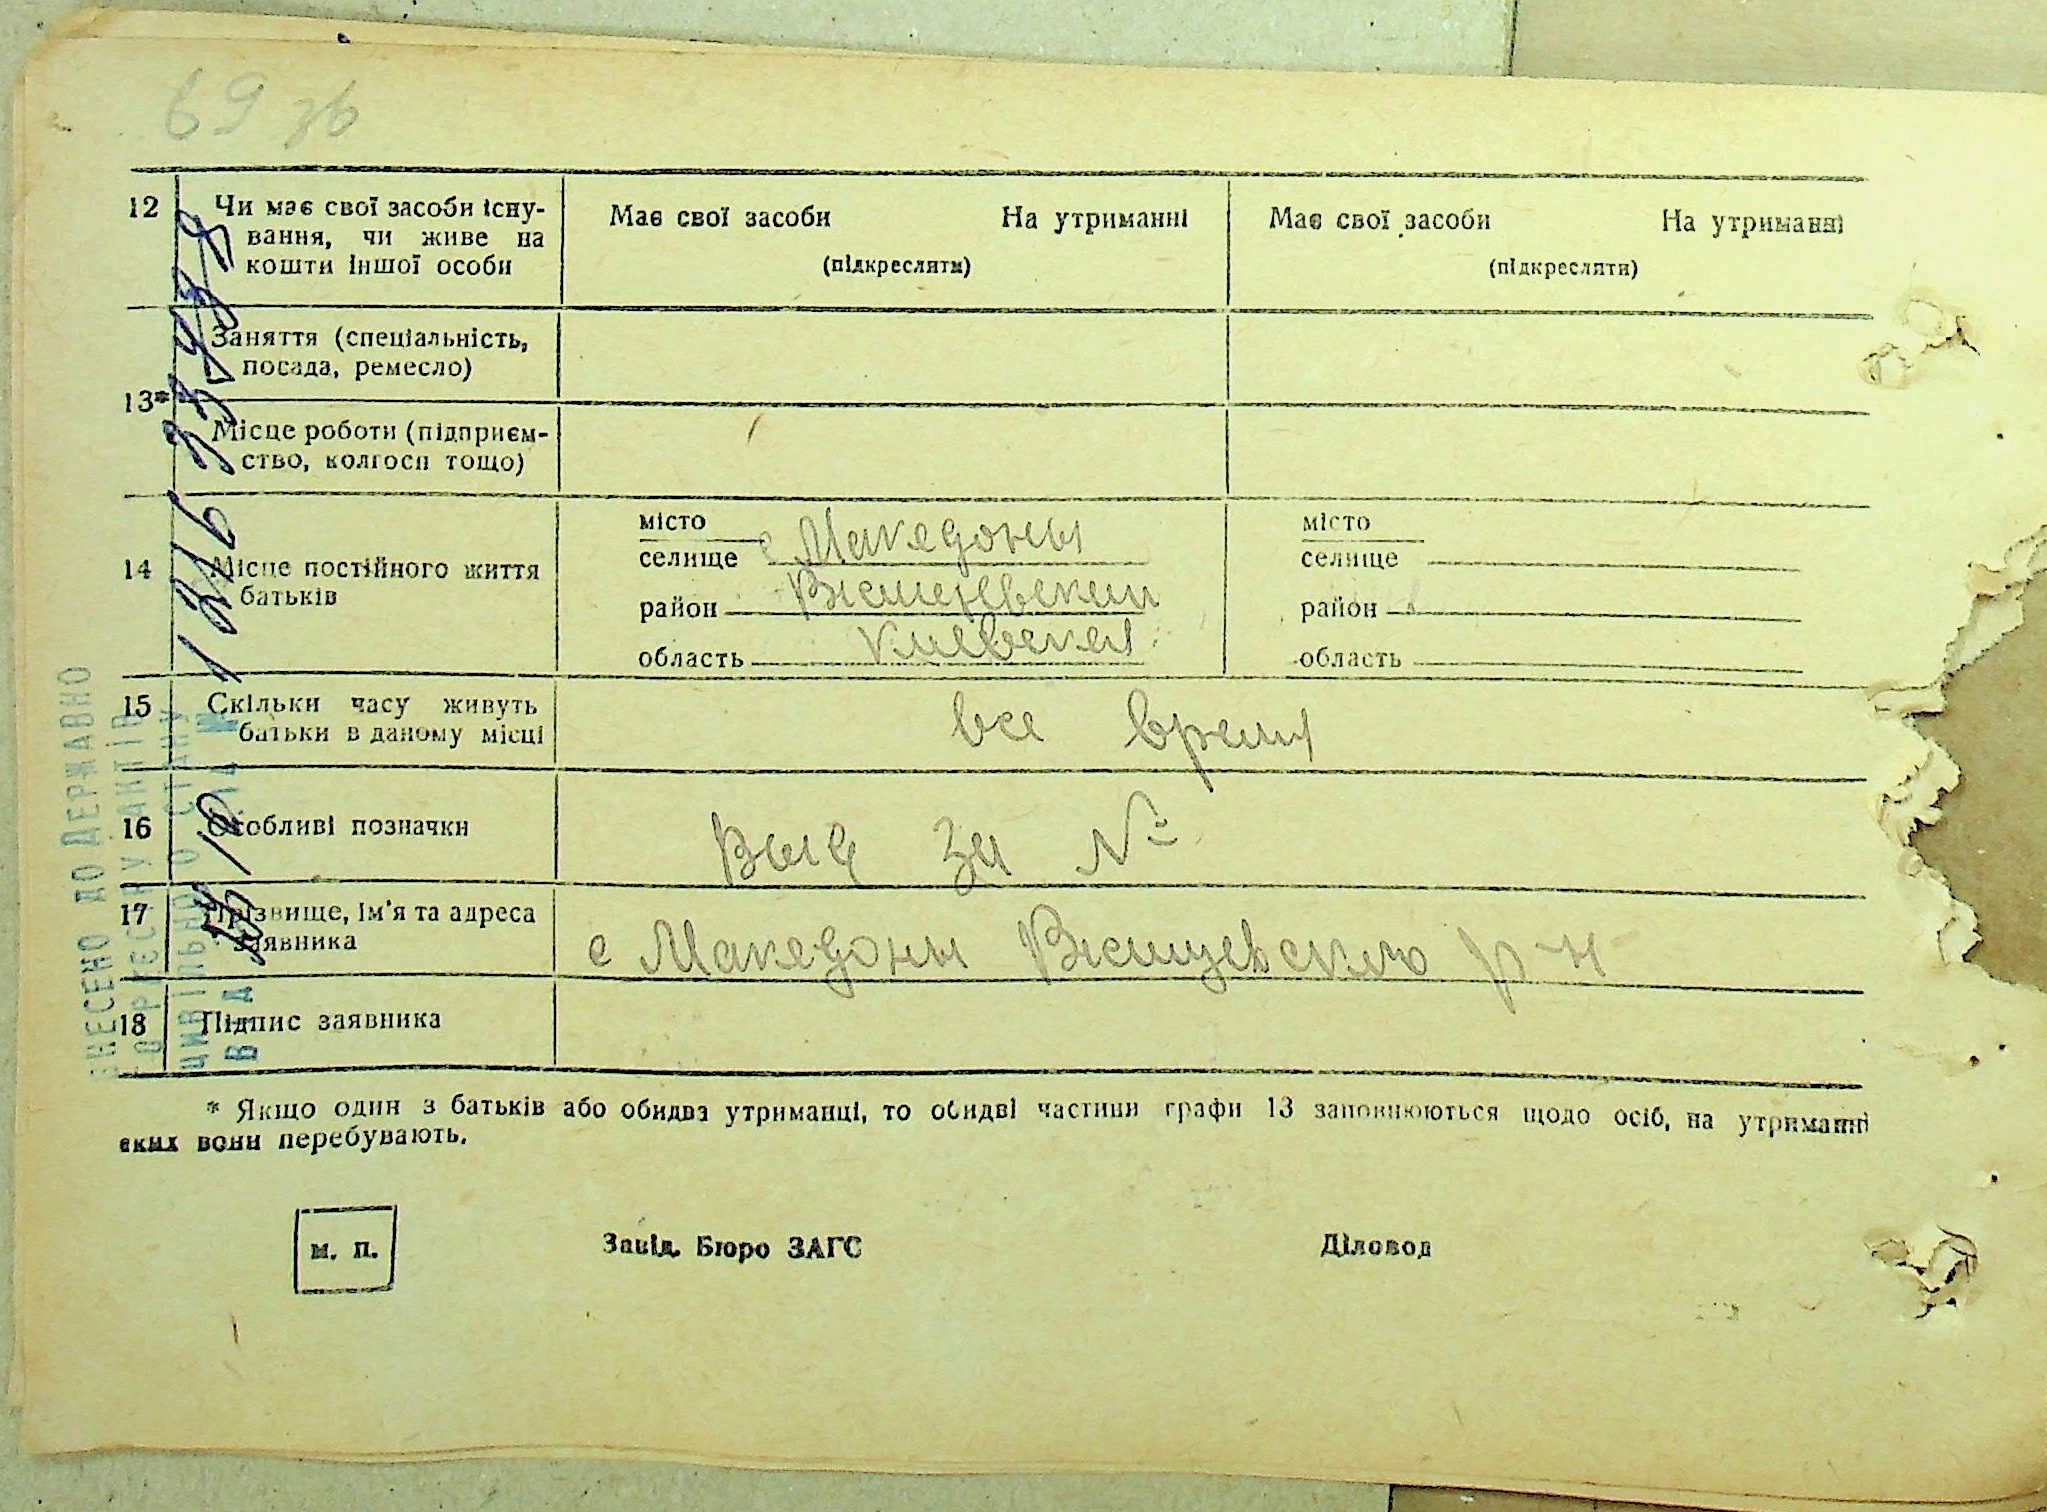 69 зв
12 Чи має свої засоби існу-
вання, чи живе на
кошти іншої особи
Має свої засоби На утриманні
(підкреслити)
Має свої засоби На утриманні
(підкреслити)
13*
Заняття (спеціальність,
посада, ремесло)
Місце роботи (підприєм-
ство, колгосп тощо)
14 Місце постійного життя
батьків
місто
селище с Македоны
район
область Киевская
місто
селище
район
область
15 Скільки часу живуть
батьки в даному місці
все время
16 Особливі позначки
за №
17 Прізвище, ім'я та адреса
заявника
с Македоны р-н
18 Підпис заявника
* Якщо один з батьків або обидва утриманці, то обидві частини графи 13 заповнюються щодо осіб, на утриманні
яких вони перебувають.
м. п.
Завід. Бюро ЗАГС
Діловод
ВНЕСЕНО ДО ДЕРЖАВНО
ЦИВІЛЬНОГО СТАНУ